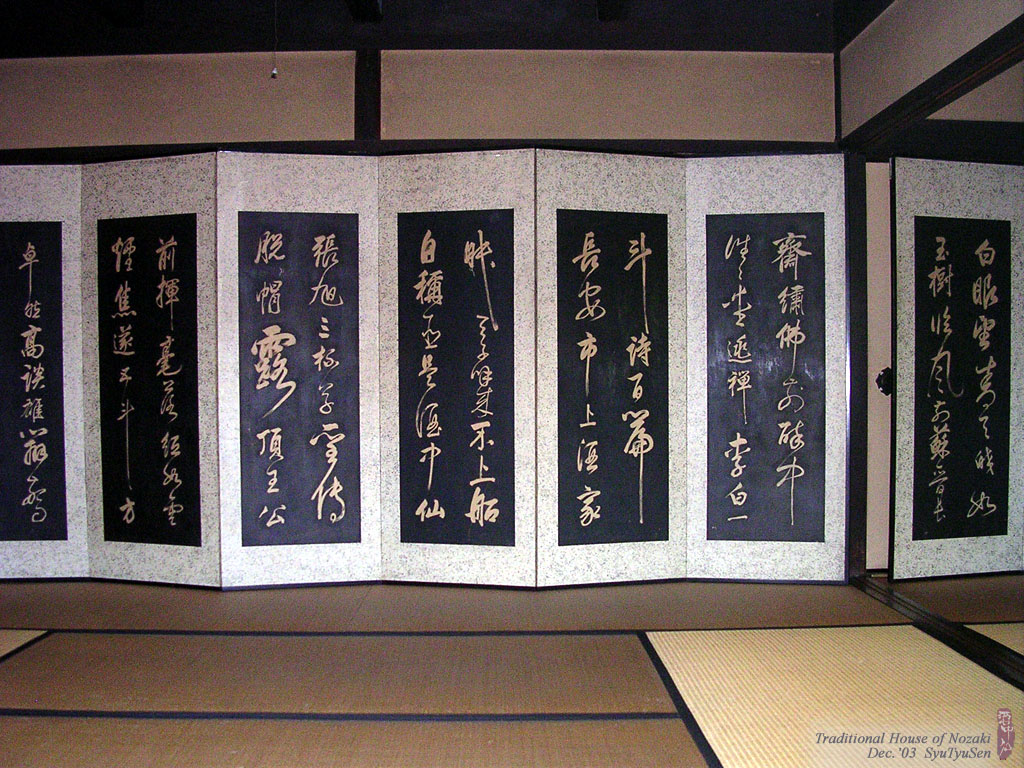 白眼望青天皎如
玉樹臨風前蘇晉長
齋繡佛前醉中
往々愛逃禪李白一
斗詩百篇
長安市上酒家
眠天子呼來不上船
自稱臣是酒中仙
張旭三杯草聖傳
脫帽露頂王公
前揮毫落紙如雲
煙焦遂五斗方
卓然高談雄辯驚
Traditional House of Nozaki
Dec.'03 SyuTyuSen